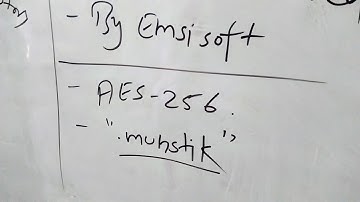 - By Emsisoft
- AES-256.
- ".muhstik"